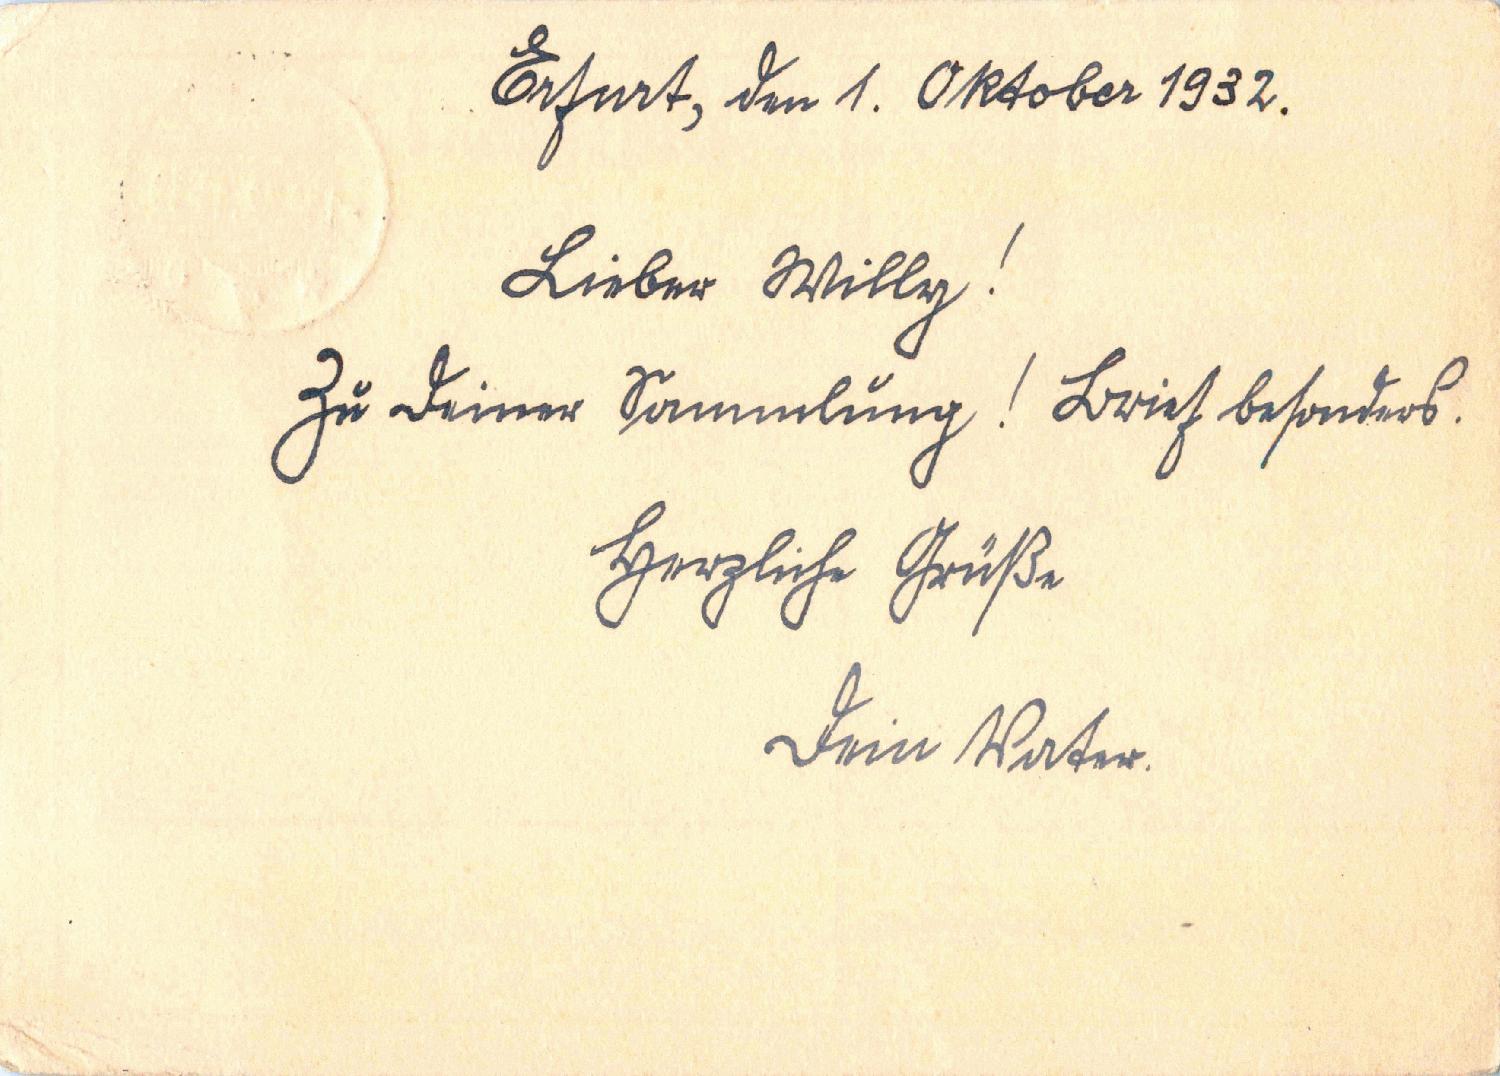 Erfurt, den 1. Oktober 1932.
Lieber Willy!
Zu Deiner Sammlung! Brief besonders.
Herzliche Grüße
Dein Vater.